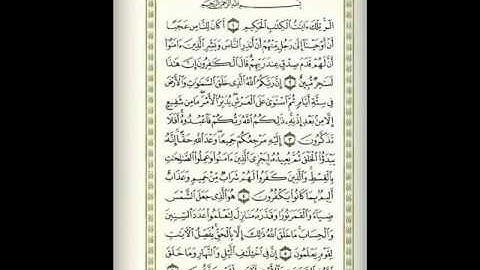 بسم الله الرحمن الرحيم
الر تلك ءايت الكتاب الحكيم ١ أكان للناس عجبا
أن أوحينا إلى رجل منهم أن أنذر الناس وبشر الذين ءامنوا
أن لهم قدم صدق عند ربهم قال الكفرون إن هذا
لسحر مبين ٢ إن ربكم الله الذي خلق السموت والأرض
في ستة أيام ثم استوى على العرش يدبر الأمر ما من شفيع
إلا من بعد إذنه ذلكم الله ربكم فاعبدوه أفلا
تذكرون ٣ إليه مرجعكم جميعا وعد الله حقا إنه
يبدؤا الخلق ثم يعيده ليجزي الذين ءامنوا وعملوا الصلحت
بالقسط والذين كفروا لهم شراب من حميم وعذاب
أليم بما كانوا يكفرون ٤ هو الذي جعل الشمس
ضياء والقمر نورا وقدره منازل لتعلموا عدد السنين
والحساب ما خلق الله ذلك إلا بالحق يفصل الأيت
لقوم يعلمون ٥ إن في اختلف اليل والنهار وما خلق